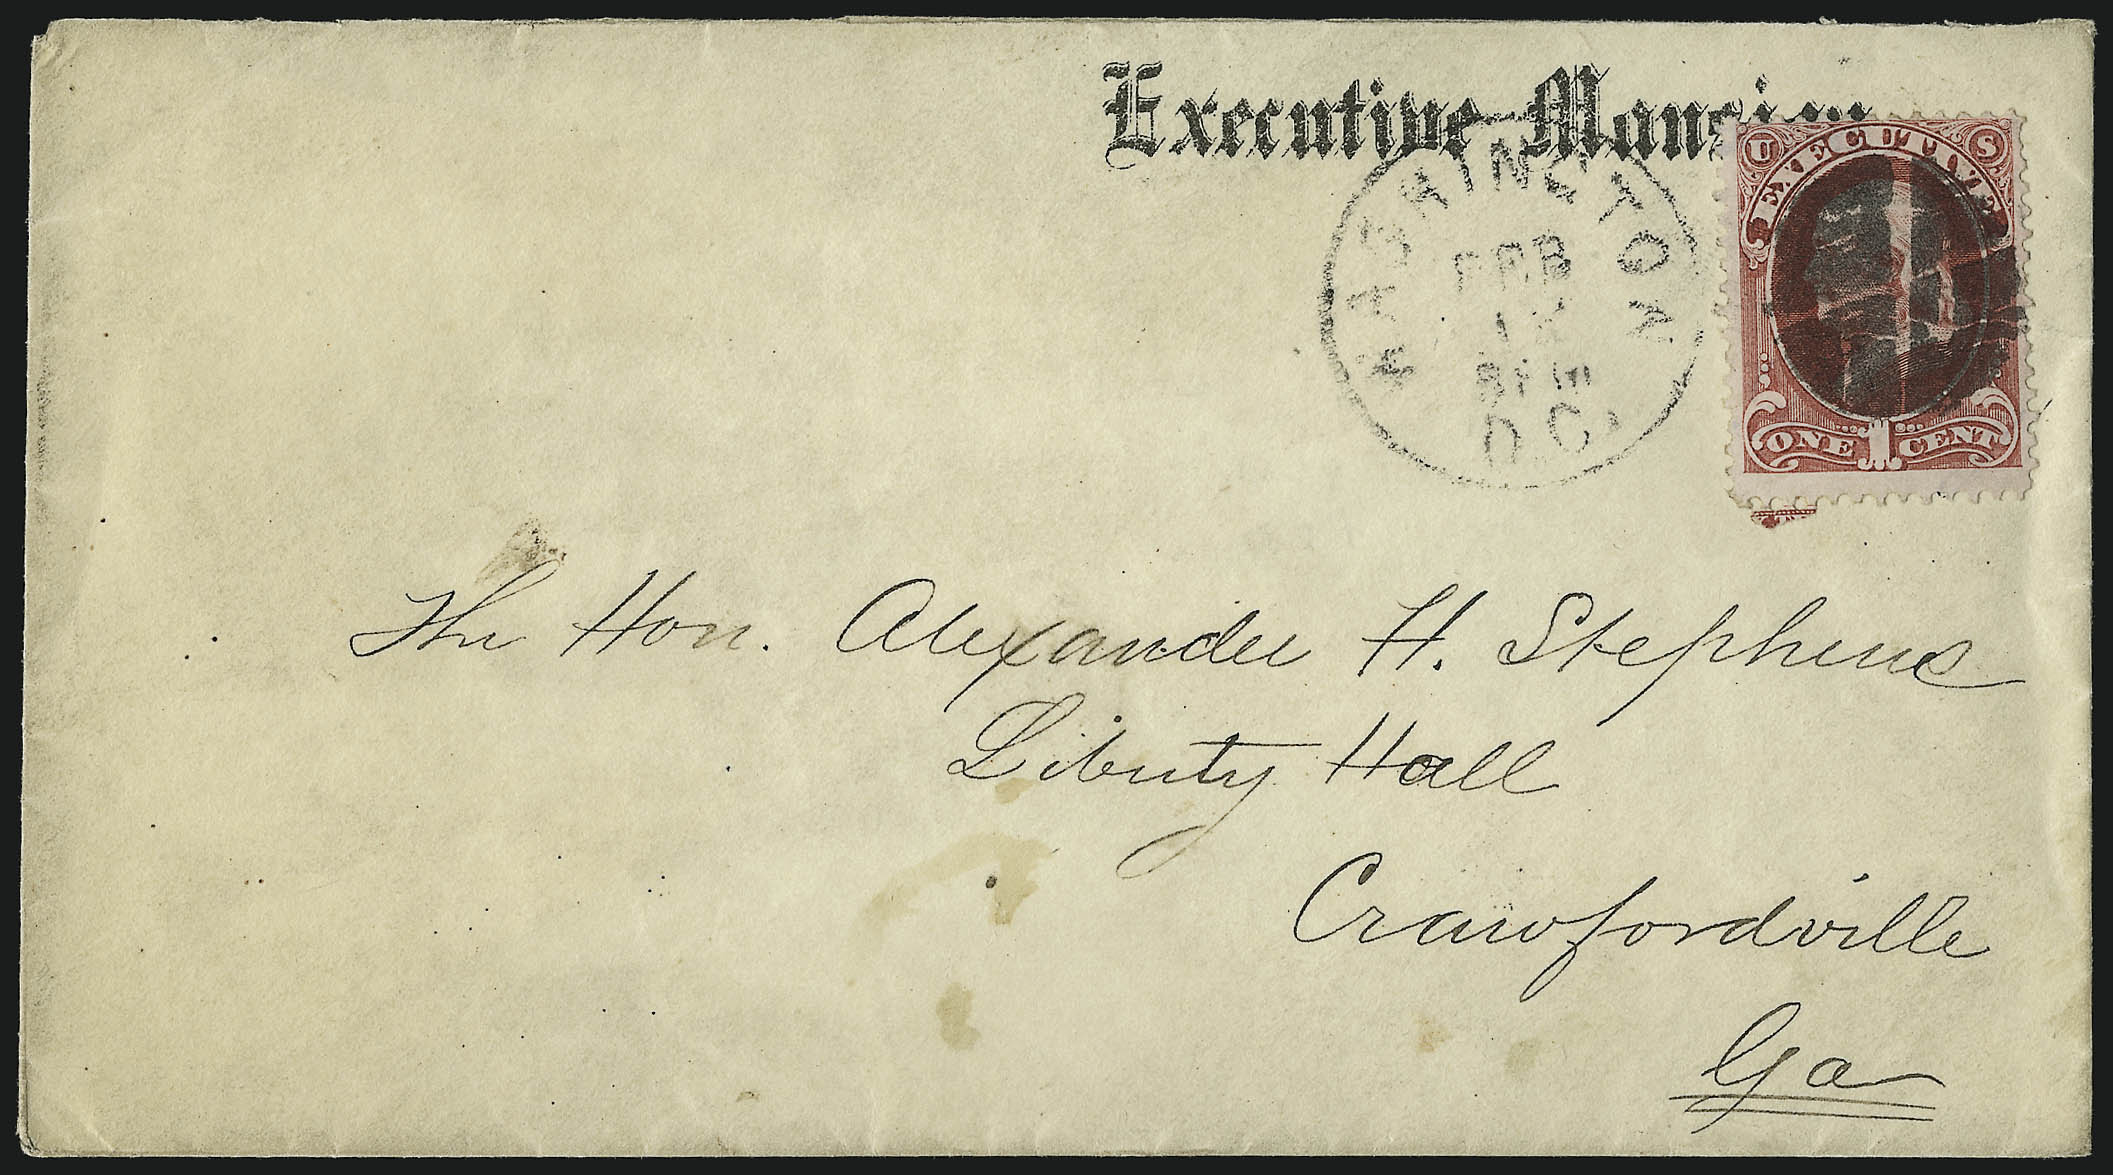 Executive Mansion
WASHINGTON
FEB
D.C.
U S
EXECUTIVE
ONE 1 CENT
The Hon. Alexander H. Stephens
Liberty Hall
Crawfordville
Ga